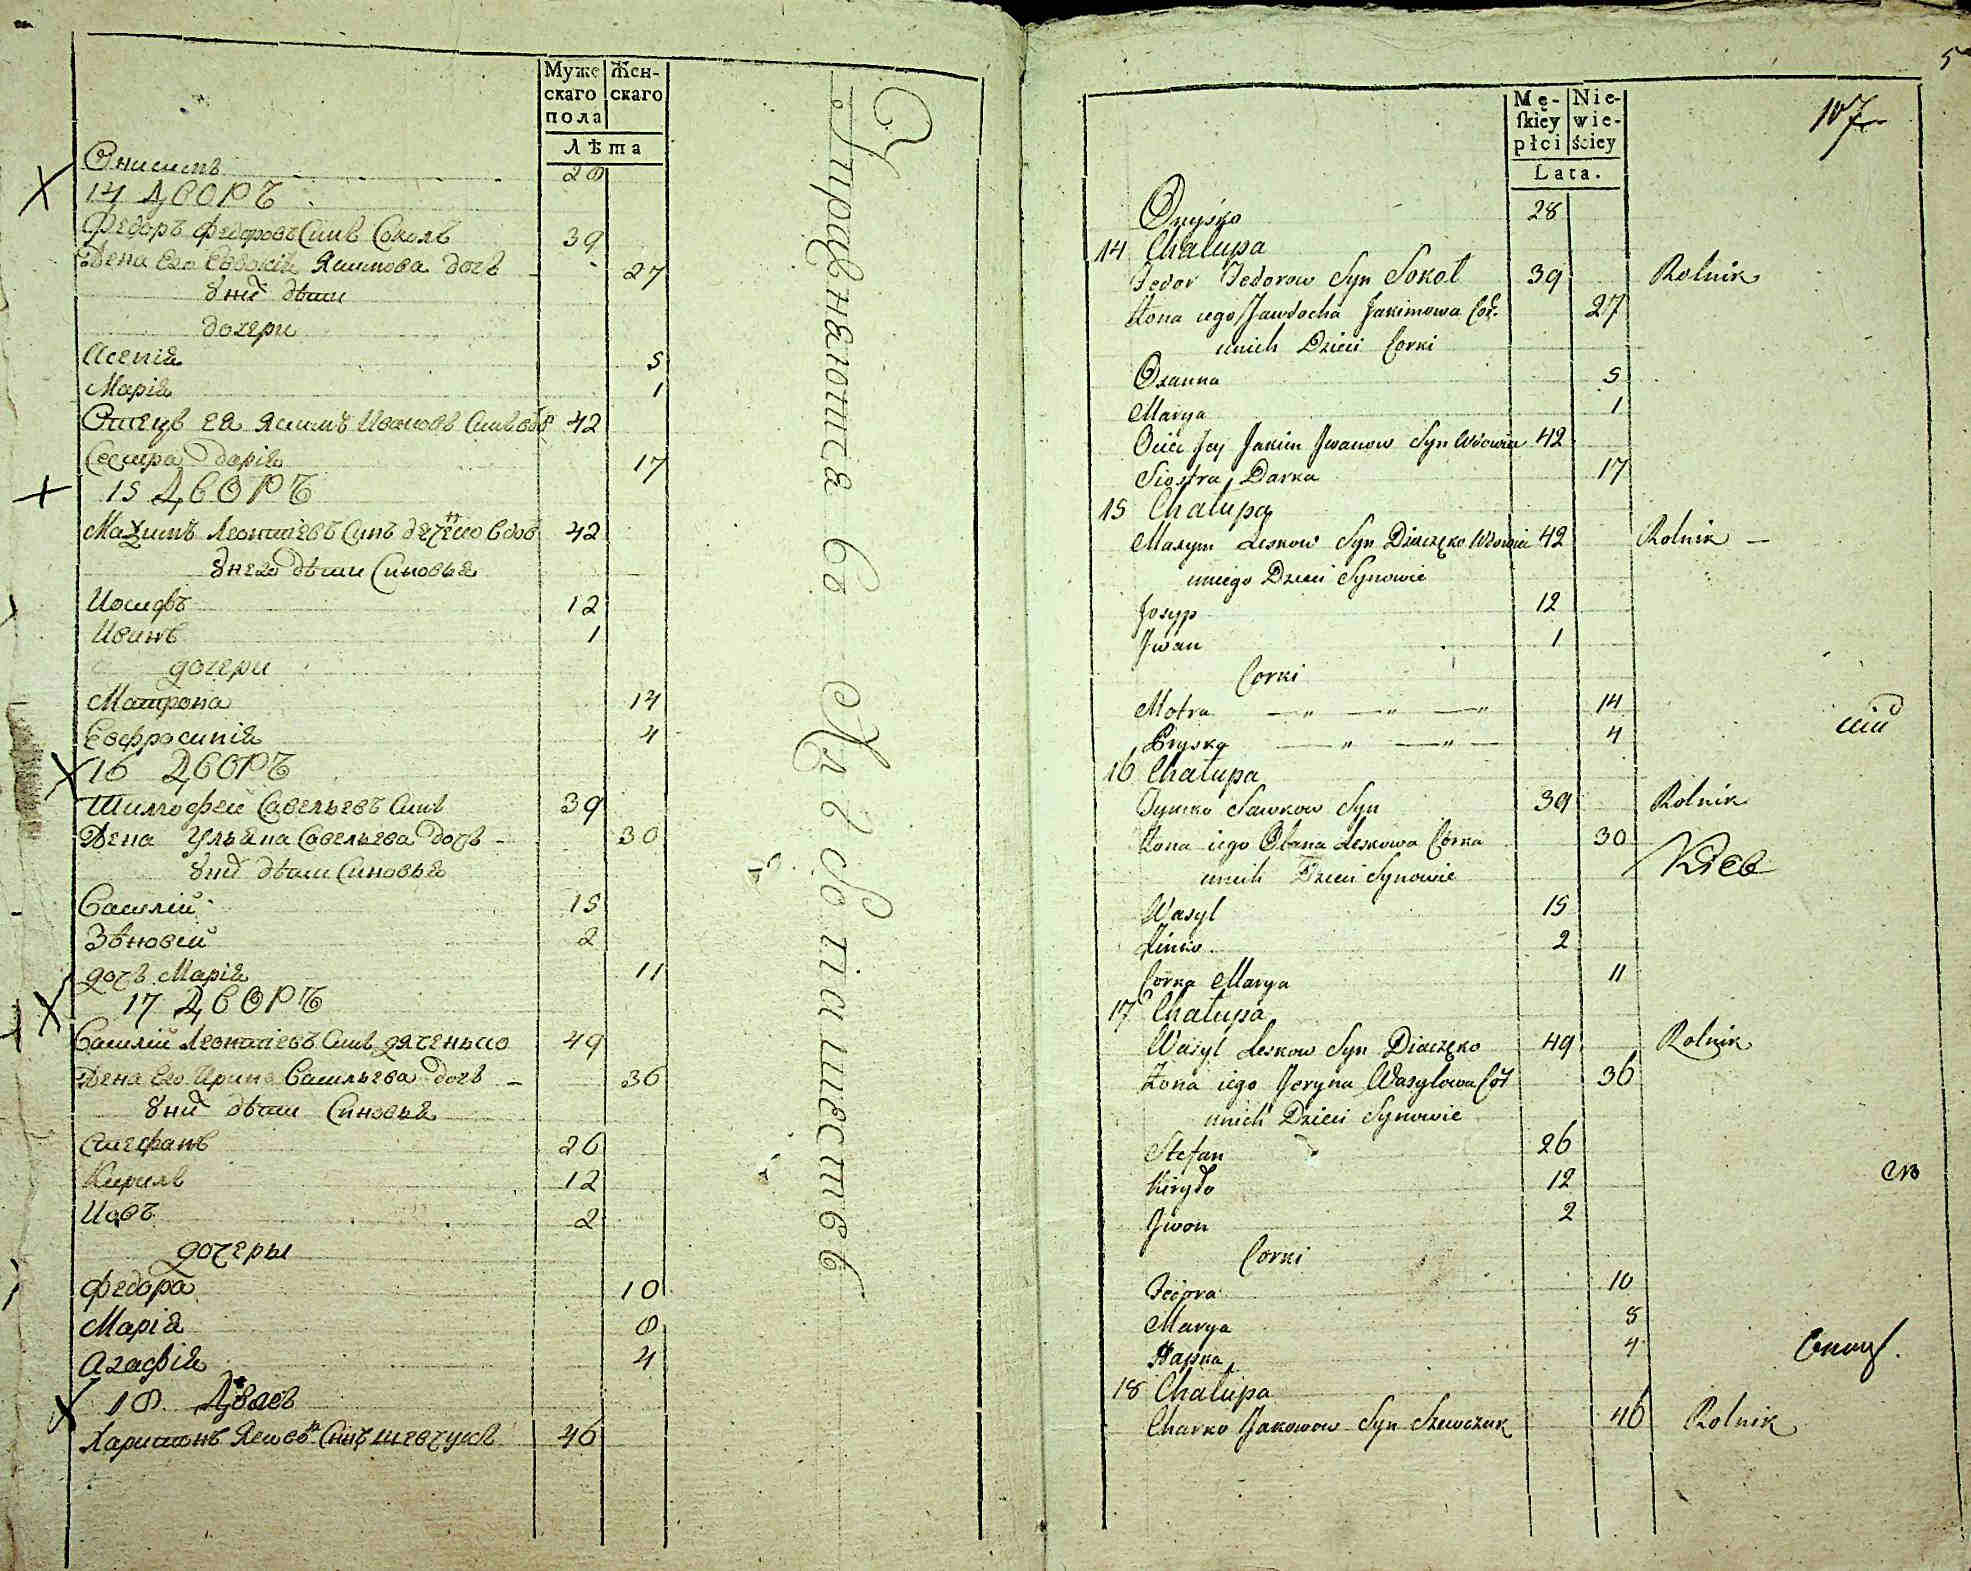 Муже Жен-
скаго скаго
пола
Лѣта
Онисимъ 28
14 ДВОРЪ
Федоръ Федоровъ Синъ Соколъ 39
Жена Его Евдокія Якимова дочъ 27
У них дѣти
дочери
Ксенія 5
Марія 1
Отецъ ея Якимъ Ивановъ Синъ вдов 42
Сестра Дарія 17
15 ДВОРЪ
Маѯимъ Леонтіевъ Синъ вдов 42
У него дѣти Синовья
Иосифъ 12
Иванъ 1
дочери
Матрона 14
Евфросинія 4
16 ДВОРЪ
Тимофей Савельевъ Синъ 39
Жена Ульяна Савельева дочъ 30
У них дѣти Синовья
Василій 15
Зѣновей 2
дочъ Марія 11
17 ДВОРЪ
Василій Леонтіевъ Синъ дяченько 49
Жена Его Ирина Васильева дочъ 36
У них дѣти Синовья
Стефанъ 26
Кирилъ 12
Иовъ 2
дочеры
Федора 10
Марія 8
Агафія 4
18 Дворъ
Харитонъ Яковъ Синъ шевчукъ 46
Управнаюшта въ
5
107
Mę- Nie-
skiey wie-
płci ściey
Lata.
Onyśko 28
14 Chałupa
Fedor Fedorow Syn Sokoł 39 Rolnik
Żona iego Jawdocha Jakimowa Cor. 27
unich Dzieci Corki
Oxanna 5
Marya 1
Ociec Jey Jakim Jwanow Syn Wdowiec 42
Siostra Darka 17
15 Chałupa
Maxym Leskow Syn Diaczęko Wdowiec 42 Rolnik
uniego Dzieci Synowie
Josyp 12
Jwan 1
Corki
Motra — " — " — " 14
Pryska — " — " — 4
16 Chałupa
Tymko Sawkow Syn 39 Rolnik
Żona iego Ulana Leskowa Córka 30
unich Dzieci Synowie
Wasyl 15
Zinko 2
Corka Marya 11
17 Chałupa
Wasyl Leskow Syn Diaczęko 49 Rolnik
Żona iego Jeryna Wasylowa Cór 36
unich Dzieci Synowie
Stefan 26
Kiryło 12
Jwon 2
Corki
Fedora 10
Marya 8
Hapka 4
18 Chałupa
Charko Jakowow Syn Szewczuk 46 Rolnik